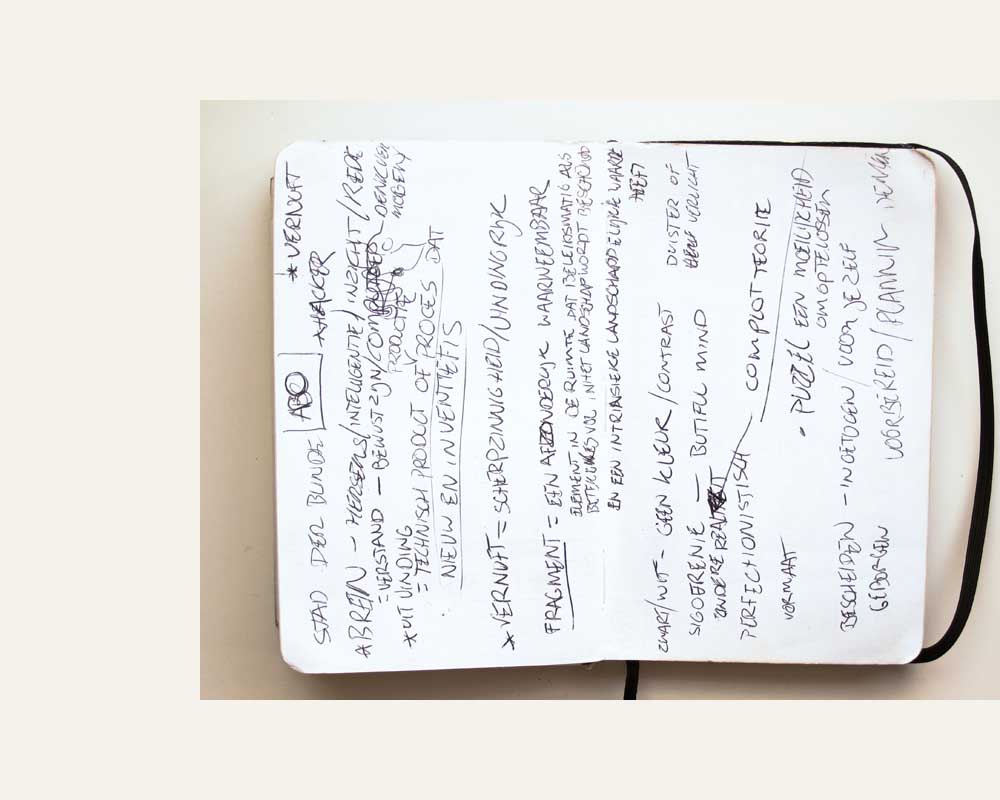 STAD DER BLINDE ABO
* HACKER * VERNUFT
* BREIN - HERSENS/INTELLIGENTIE/INZICHT/REDE
= VERSTAND - BEWUSTZIJN/ DENKVER
MOGEN
* UITVINDING PRODUCTIE
= TECHNISCH PRODUCT OF PROCES DAT
NIEUW EN INVENTIEF IS
* VERNUFT = SCHERPZINNIGHEID/VINDINGRYK
FRAGMENT = EEN AFZONDERLYK WAARNEEMBAAR
ELEMENT IN DE RUIMTE DAT BEELDSMATIG ALS
BETEKENISVOL IN HET LANDSCHAP WORDT BESCHOUWD
EN EEN INTRINSIEKE LANDSCHAPPELIJKE WAARDE
HEEFT
ZWART/WIT - GEEN KLEUR/CONTRAST DUISTER OF
SIGOFRENIE - BUTIFUL MIND HEEL VERLICHT
ANDERE REALITEIT
PERFECTIONISTISCH - COMPLOT TEORIE
VORMAAT • PUZZEL EEN MOEILIKHEID
OM OP TE LOSSEN
BESCHEIDEN - INGETOGEN/VOOR JE ZELF
GEBORGEN VOORBEREID/PLANNIN